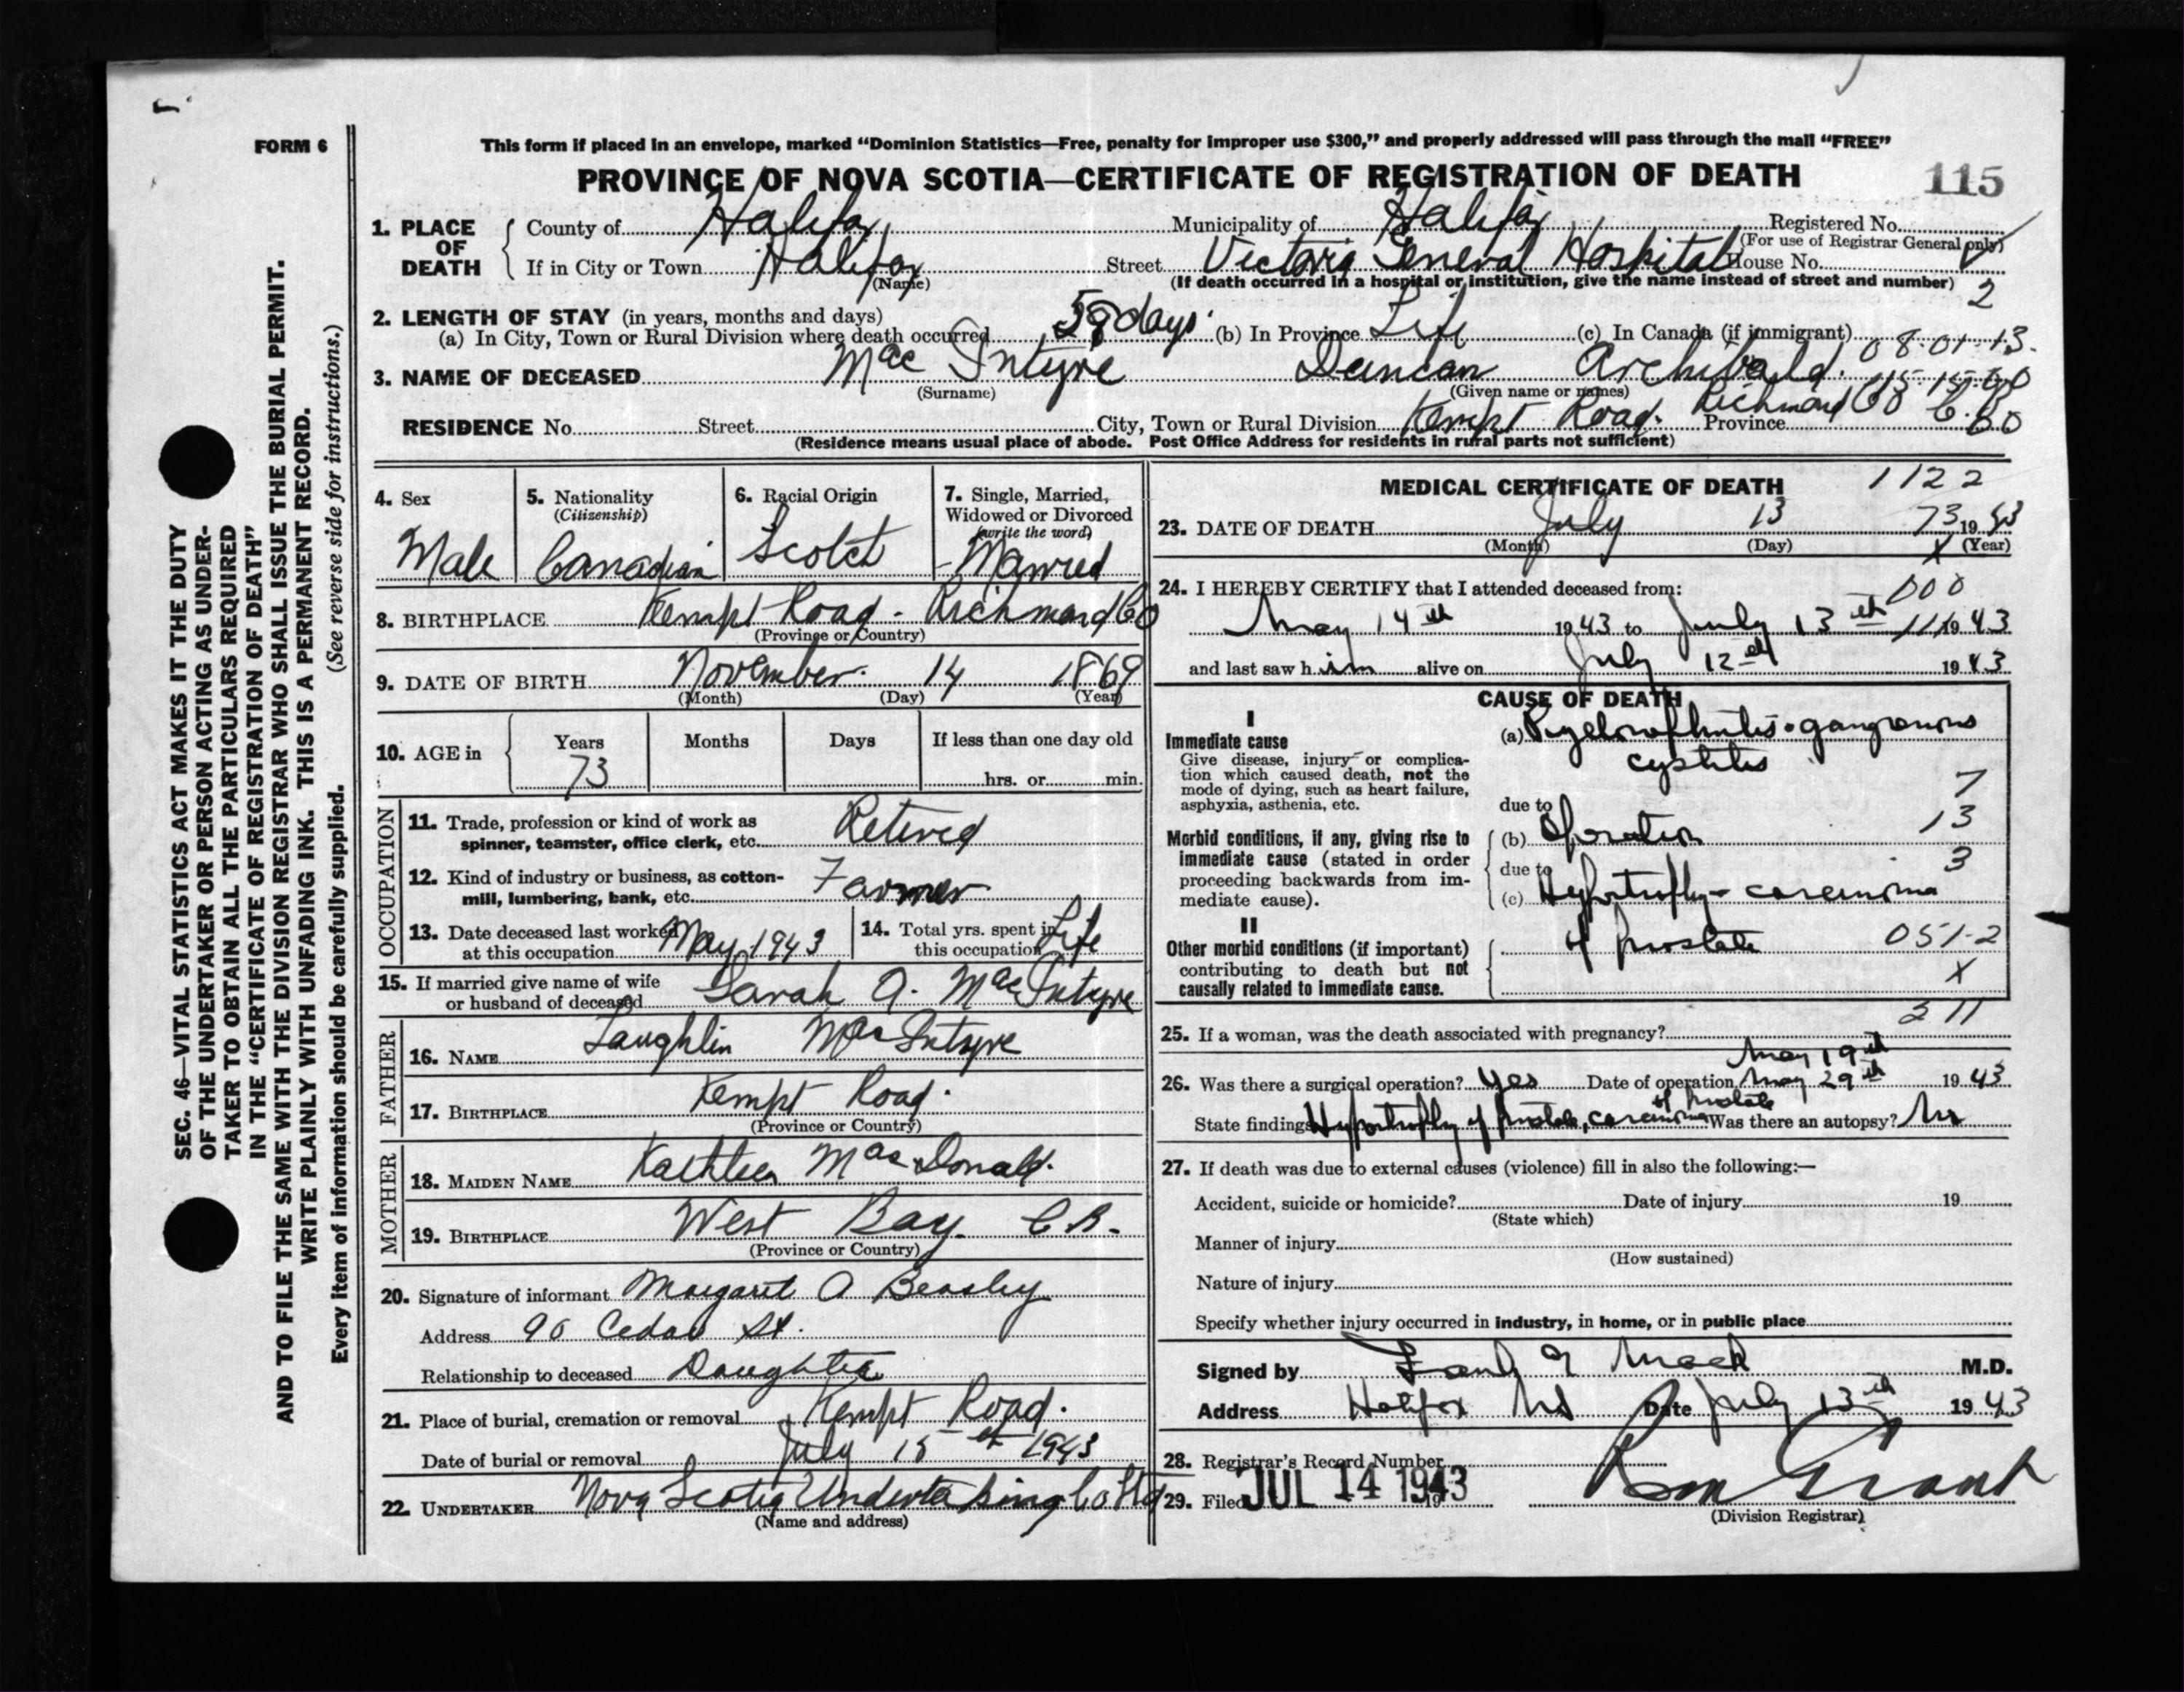 FORM 6
This form if placed in an envelope, marked “Dominion Statistics—Free, penalty for improper use $300,” and properly addressed will pass through the mail “FREE”
PROVINCE OF NOVA SCOTIA—CERTIFICATE OF REGISTRATION OF DEATH 115
1. PLACE OF DEATH { County of Halifax Municipality of Halifax Registered No.
(For use of Registrar General only)
If in City or Town Halifax Street Victoria General Hospital House No.
(Name) (If death occurred in a hospital or institution, give the name instead of street and number) 2
2. LENGTH OF STAY (in years, months and days)
(a) In City, Town or Rural Division where death occurred 58 days (b) In Province Life (c) In Canada (if immigrant)
08-01-13.
3. NAME OF DECEASED Mac Intyre Duncan Archibald.
(Surname) (Given name or names)
RESIDENCE No. Street City, Town or Rural Division Kempt Road. Richmond Co C.B. Province
(Residence means usual place of abode. Post Office Address for residents in rural parts not sufficient)
4. Sex 5. Nationality (Citizenship) 6. Racial Origin 7. Single, Married, Widowed or Divorced (write the word)
Male Canadian Scotch Married
8. BIRTHPLACE Kempt Road - Richmond Co
(Province or Country)
9. DATE OF BIRTH November 14 1869
(Month) (Day) (Year)
10. AGE in { Years Months Days If less than one day old
73 hrs. or min.
OCCUPATION
11. Trade, profession or kind of work as
spinner, teamster, office clerk, etc. Retired
12. Kind of industry or business, as cotton-
mill, lumbering, bank, etc. Farmer
13. Date deceased last worked
at this occupation May 1943
14. Total yrs. spent in
this occupation Life
15. If married give name of wife
or husband of deceased Sarah A. MacIntyre
FATHER
16. NAME Laughlin MacIntyre
17. BIRTHPLACE Kempt Road.
(Province or Country)
MOTHER
18. MAIDEN NAME Kathleen MacDonald.
19. BIRTHPLACE West Bay. C.B.
(Province or Country)
20. Signature of informant Margaret A Beasley
Address 90 Cedar St.
Relationship to deceased Daughter
21. Place of burial, cremation or removal Kempt Road.
Date of burial or removal July 15th 1943
22. UNDERTAKER Nova Scotia Undertaking Co Ltd
(Name and address)
MEDICAL CERTIFICATE OF DEATH 1122
23. DATE OF DEATH July 13 73 1943
(Month) (Day) X (Year)
24. I HEREBY CERTIFY that I attended deceased from: 000
May 14th 1943 to July 13th 1943
and last saw him alive on July 12th 1943
CAUSE OF DEATH
I
Immediate cause
Give disease, injury or complica-
tion which caused death, not the
mode of dying, such as heart failure,
asphyxia, asthenia, etc.
(a) Pyelonephritis - gangrenous
cystitis
7
due to
13
Morbid conditions, if any, giving rise to
immediate cause (stated in order
proceeding backwards from im-
mediate cause).
(b) Operation
3
due to
(c) Hypertrophy - carcinoma
of prostate 051-2
II
Other morbid conditions (if important)
contributing to death but not
causally related to immediate cause.
X
25. If a woman, was the death associated with pregnancy? 211
May 19th
26. Was there a surgical operation? Yes Date of operation May 29th 1943
of prostate
State findings Hypertrophy of prostate, carcinoma Was there an autopsy? No
27. If death was due to external causes (violence) fill in also the following:—
Accident, suicide or homicide? Date of injury 19
(State which)
Manner of injury
(How sustained)
Nature of injury
Specify whether injury occurred in industry, in home, or in public place
Signed by Frank G Mack M.D.
Address Halifax NS Date July 13th 1943
28. Registrar's Record Number
29. Filed JUL 14 1943 19
(Division Registrar)
SEC. 46—VITAL STATISTICS ACT MAKES IT THE DUTY
OF THE UNDERTAKER OR PERSON ACTING AS UNDER-
TAKER TO OBTAIN ALL THE PARTICULARS REQUIRED
IN THE “CERTIFICATE OF REGISTRATION OF DEATH”
AND TO FILE THE SAME WITH THE DIVISION REGISTRAR WHO SHALL ISSUE THE BURIAL PERMIT.
WRITE PLAINLY WITH UNFADING INK. THIS IS A PERMANENT RECORD.
Every item of information should be carefully supplied. (See reverse side for instructions.)